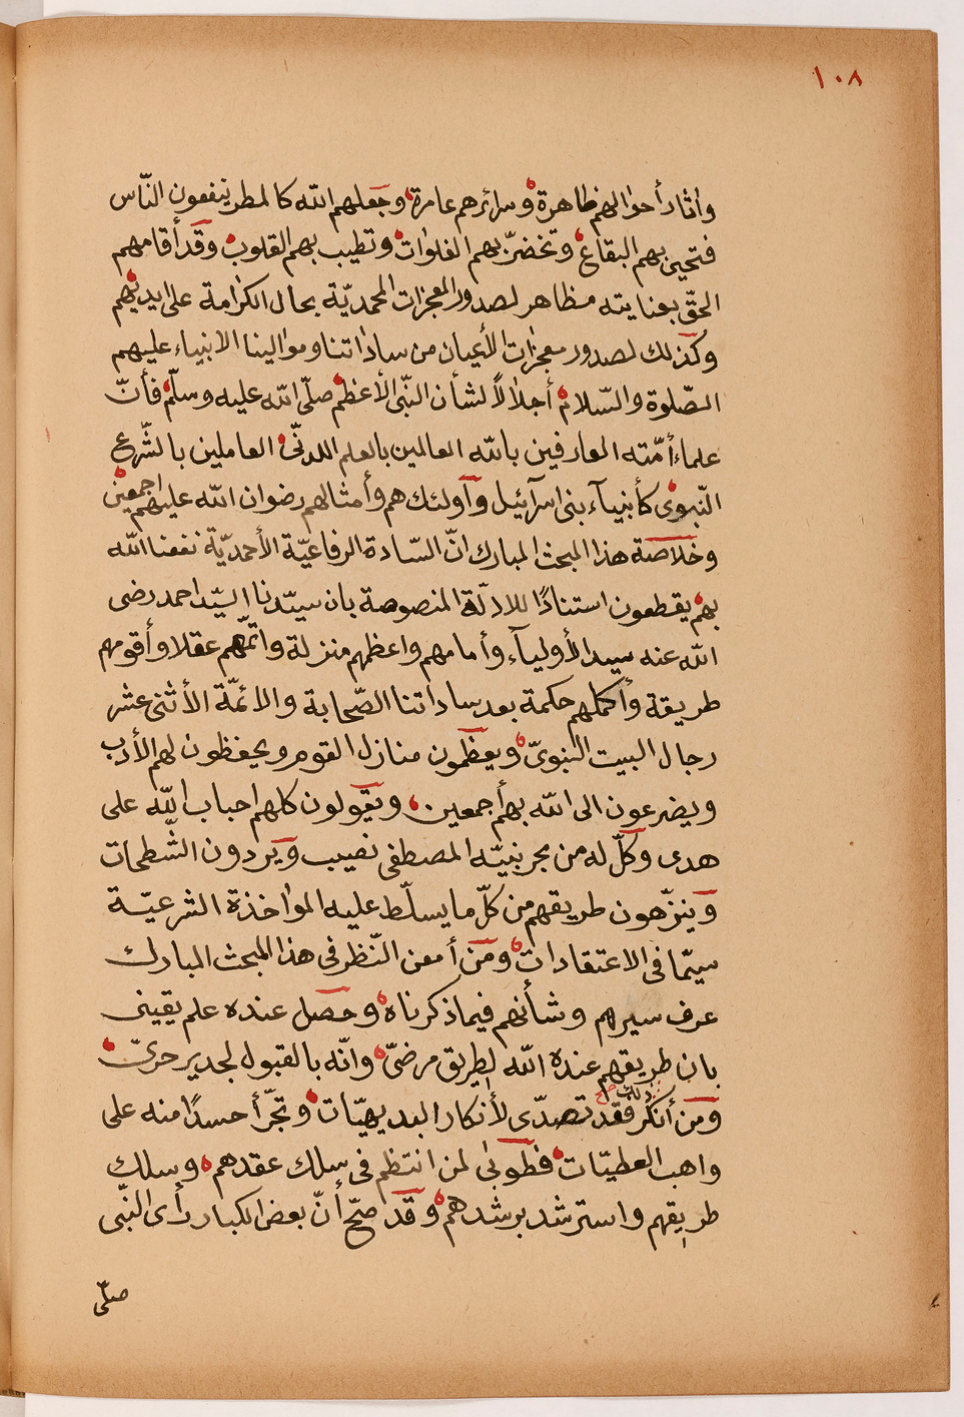 ١٠٨
وأثار أحوالهم ظاهرة وسرائرهم عامرة وجعلهم الله كالمطر ينفعون النّاس
فتحيى بهم البقاع وتخضرّ بهم الفلوات وتطيب بهم القلوب وقد أقامهم
الحقّ بعنايته مظاهر لصدور المعجزات المحمديّة بحال الكرامة على ايديهم
وكذلك لصدور معجزات الأعيان من ساداتنا وموالينا الانبياء عليهم
الصّلوة والسّلام أجلالاً لشأن النّبى الأعظم صلّى الله عليه وسلّم فأنّ
علماء أمّته العارفين بالله العالمين بالعلم اللدنّى العاملين بالشّرع
النّبوى كأنبيآء بنى اسرآئيل وآولئك هم وأمثالهم رضوان الله عليهم اجمعين
وخلاصة هذا المبحث المبارك انّ السّادة الرفاعيّة الأحمديّة نفعنا الله
بهم يقطعون استنادًا للادلّة المنصوصة بان سيّدنا السّيّد احمد رضى
الله عنه سيد الأوليآء وأمامهم واعظمهم منزلة واتمّهم عقلا وأقومهم
طريقة وأكملهم حكمة بعد ساداتنا الصّحابة والائمّة الأثنى عشر
رجال البيت النبوىّ ويعظّمون منازل القوم ويحفظون لهم الأدب
ويضرعون الى الله بهم أجمعين ويقولون كلهم احباب الله على
هدى وكلّ له من بحر نبيّه المصطفى نصيب ويردون الشّطحات
وينزّهون طريقهم من كلّ ما يسلّط عليه المواخذة الشرعيّة
سيّما فى الاعتقادات ومن أمعن النّظر فى هذا المبحث المبارك
عرف سيرهم وشأنهم فيما ذكرناه وحصل عنده علم يقينى
بان طريقهم عنده الله لطريق مرضىّ وانّه بالقبول لجدير حرىّ
ومن أنكر ذلك صح فقد تصدّى لأنكار البديهيّات وتجرّأ حسدًا منه على
واهب العطيّات فطوبى لمن انتظم فى سلك عقدهم وسلك
طريقهم واسترشد برشدهم وقد صحّ أنّ بعض الكبار رأى النّبى
صلّى